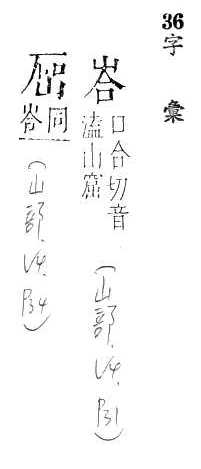 36 字彙
峇
口合切音
溘山窟
(山部. P31)
同
峇
(山部. P34)